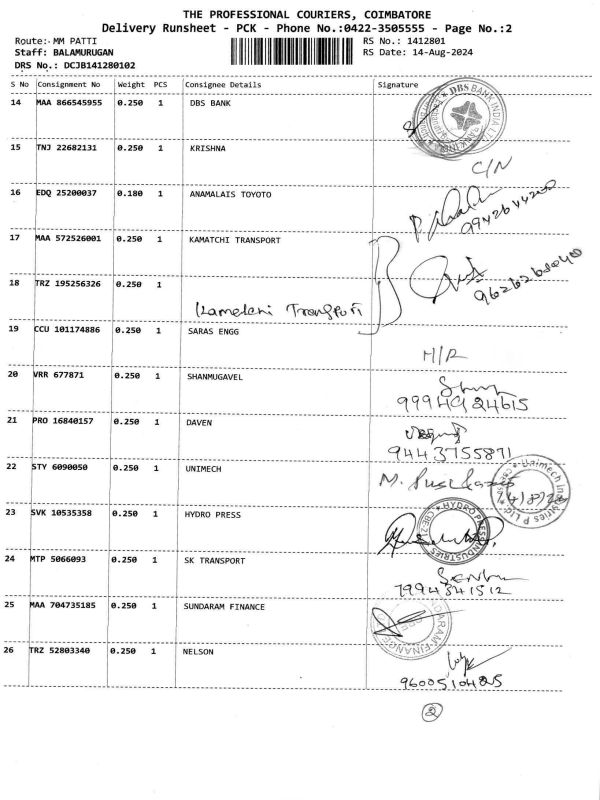 THE PROFESSIONAL COURIERS, COIMBATORE
Delivery Runsheet - PCK - Phone No.:0422-3505555 - Page No.:2
Route:- MM PATTI
RS No.: 1412801
Staff: BALAMURUGAN
RS Date: 14-Aug-2024
DRS No.: DCJB141280102
S No Consignment No Weight PCS Consignee Details Signature
14 MAA 866545955 0.250 1 DBS BANK
DBS BANK INDIA LTD
15 TNJ 22682131 0.250 1 KRISHNA
C/N
16 EDQ 25200037 0.180 1 ANAMALAIS TOYOTO
9942644200
17 MAA 572526001 0.250 1 KAMATCHI TRANSPORT
18 TRZ 195256326 0.250 1
Transport
19 CCU 101174886 0.250 1 SARAS ENGG
H/R
20 VRR 677871 0.250 1 SHANMUGAVEL
9994924615
21 PRO 16840157 0.250 1 DAVEN
9443755871
22 STY 6090050 0.250 1 UNIMECH
M.
23 SVK 10535358 0.250 1 HYDRO PRESS
HYDRO PRESS INDUSTRIES
24 MTP 5066093 0.250 1 SK TRANSPORT
7994341512
25 MAA 704735185 0.250 1 SUNDARAM FINANCE
FINANCE
26 TRZ 52803340 0.250 1 NELSON
2